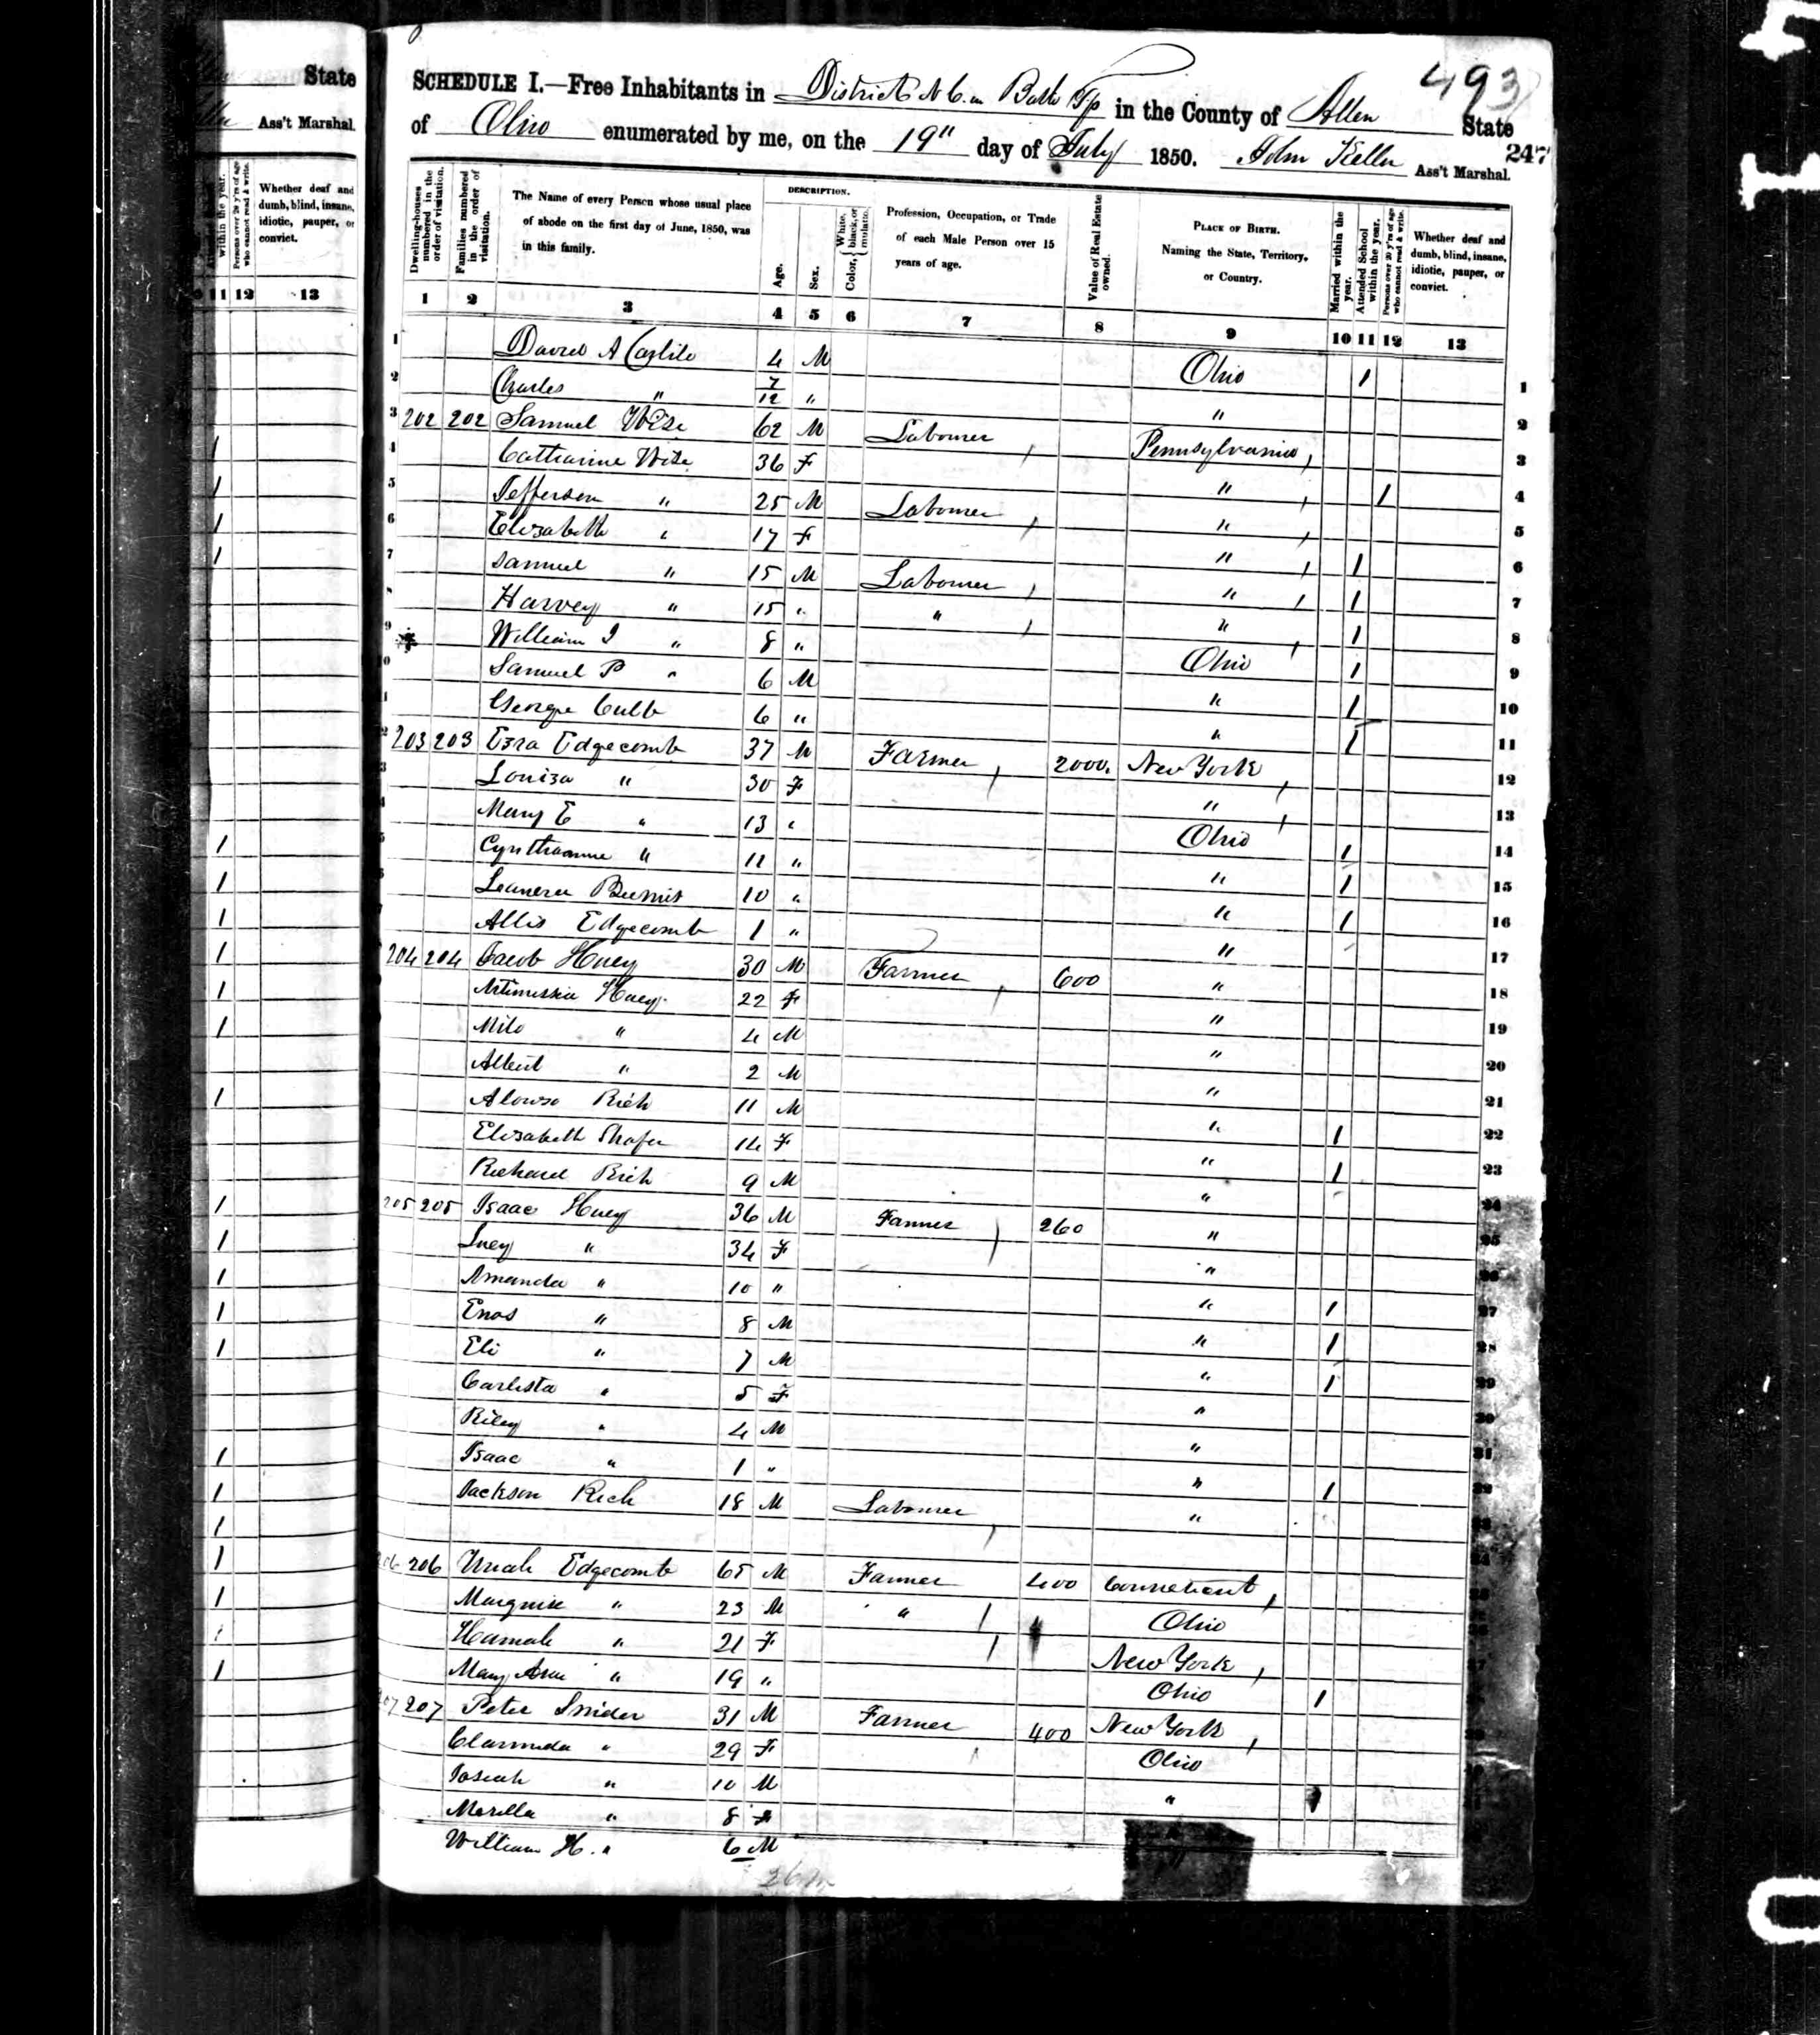 State
Ass't Marshal.
within the year.
Persons over 20 y'rs of age who cannot read & write.
Whether deaf and dumb, blind, insane, idiotic, pauper, or convict.
11 12 13
493
SCHEDULE I.—Free Inhabitants in District N 6. in Bath Tp in the County of Allen State
of Ohio enumerated by me, on the 19" day of July 1850. John Keller Ass't Marshal.
247
Dwelling-houses numbered in the order of visitation.
Families numbered in the order of visitation.
The Name of every Person whose usual place of abode on the first day of June, 1850, was in this family.
DESCRIPTION.
Age.
Sex.
Color, { White, black, or mulatto.
Profession, Occupation, or Trade of each Male Person over 15 years of age.
Value of Real Estate owned.
PLACE OF BIRTH.
Naming the State, Territory, or Country.
Married within the year.
Attended School within the year.
Persons over 20 y'rs of age who cannot read & write.
Whether deaf and dumb, blind, insane, idiotic, pauper, or convict.
1 2 3 4 5 6 7 8 9 10 11 12 13
1 David A Carlile 4 M Ohio 1 1
2 Charles " 7/12 " " 2
3 202 202 Samuel Wise 62 M Labourer Pennsylvania 3
4 Catharine Wise 36 F " 1 4
5 Jefferson " 25 M Labourer " 5
6 Elizabeth " 17 F " 1 6
7 Samuel " 15 M Labourer " 1 7
Harvey " 15 " " " 1 8
9 William J " 8 " Ohio 1 9
Samuel P " 6 M " 1 10
George Culb 6 " " 1 11
203 203 Ezra Edgecomb 37 M Farmer 2000. New York 12
Louiza " 30 F " 13
Mary E " 13 " Ohio 1 14
Cynthianne " 11 " " 1 15
10 " " 1 16
Allis Edgecomb 1 " " 17
204 204 Jacob Huey 30 M Farmer 600 " 18
Artimissia Huey 22 F " 19
Milo " 4 M " 20
Albert " 2 M " 21
Alonso Rich 11 M " 1 22
Elizabeth Shafer 14 F " 1 23
Richard Rich 9 M " 24
205 205 Isaac Huey 36 M Farmer 260 " 25
Lucy " 34 F " 26
Amanda " 10 " " 1 27
Enos " 8 M " 1 28
Eli " 7 M " 1 29
Carlista " 5 F " 30
Riley " 4 M " 31
Isaac " 1 " " 1
Jackson Rich 18 M Labourer "
206 206 Uriah Edgecomb 65 M Farmer 400 Connecticut
Marquis " 23 M " Ohio
Hannah " 21 F New York
Mary Ann " 19 " Ohio 1
207 207 Peter Snider 31 M Farmer 400 New York
Clarinda " 29 F Ohio
Josiah " 10 M " 1
Marilla " 8 F
William H. " 6 M